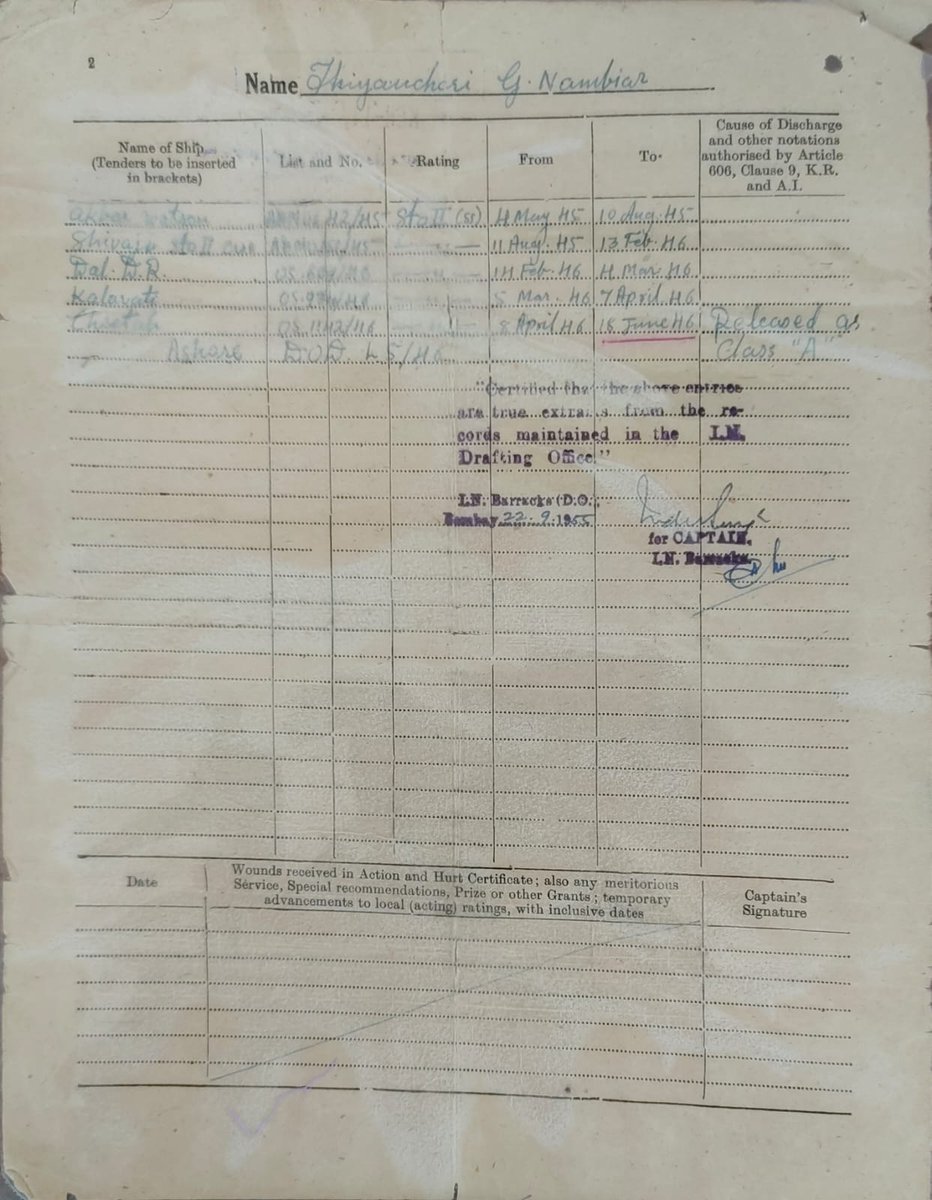 2
Name G. Nambiar
Name of Ship. (Tenders to be inserted in brackets)
List and No.
Rating
From
To
Cause of Discharge and other notations authorised by Article 606, Clause 9, K.R. and A.I.
Akbar Sto II (SS) 4 May 45 10 Aug. 45
Shivaji Sto II 11 Aug. 45 13 Feb. 46
Dal. D.R 14 Feb. 46 4 Mar 46
Kalavati 5 Mar. 46 7 April 46
Cheetah 8 April 46 18 June 46 Released as
Class "A"
"Certified that the above entries
are true extracts from the re-
cords maintained in the I.N.
Drafting Office."
I.N. Barracks (D.O.,
Bombay 22.9.1955
for CAPTAIN,
I.N. Barracks.
Date
Wounds received in Action and Hurt Certificate; also any meritorious
Service, Special recommendations, Prize or other Grants; temporary
advancements to local (acting) ratings, with inclusive dates
Captain's
Signature